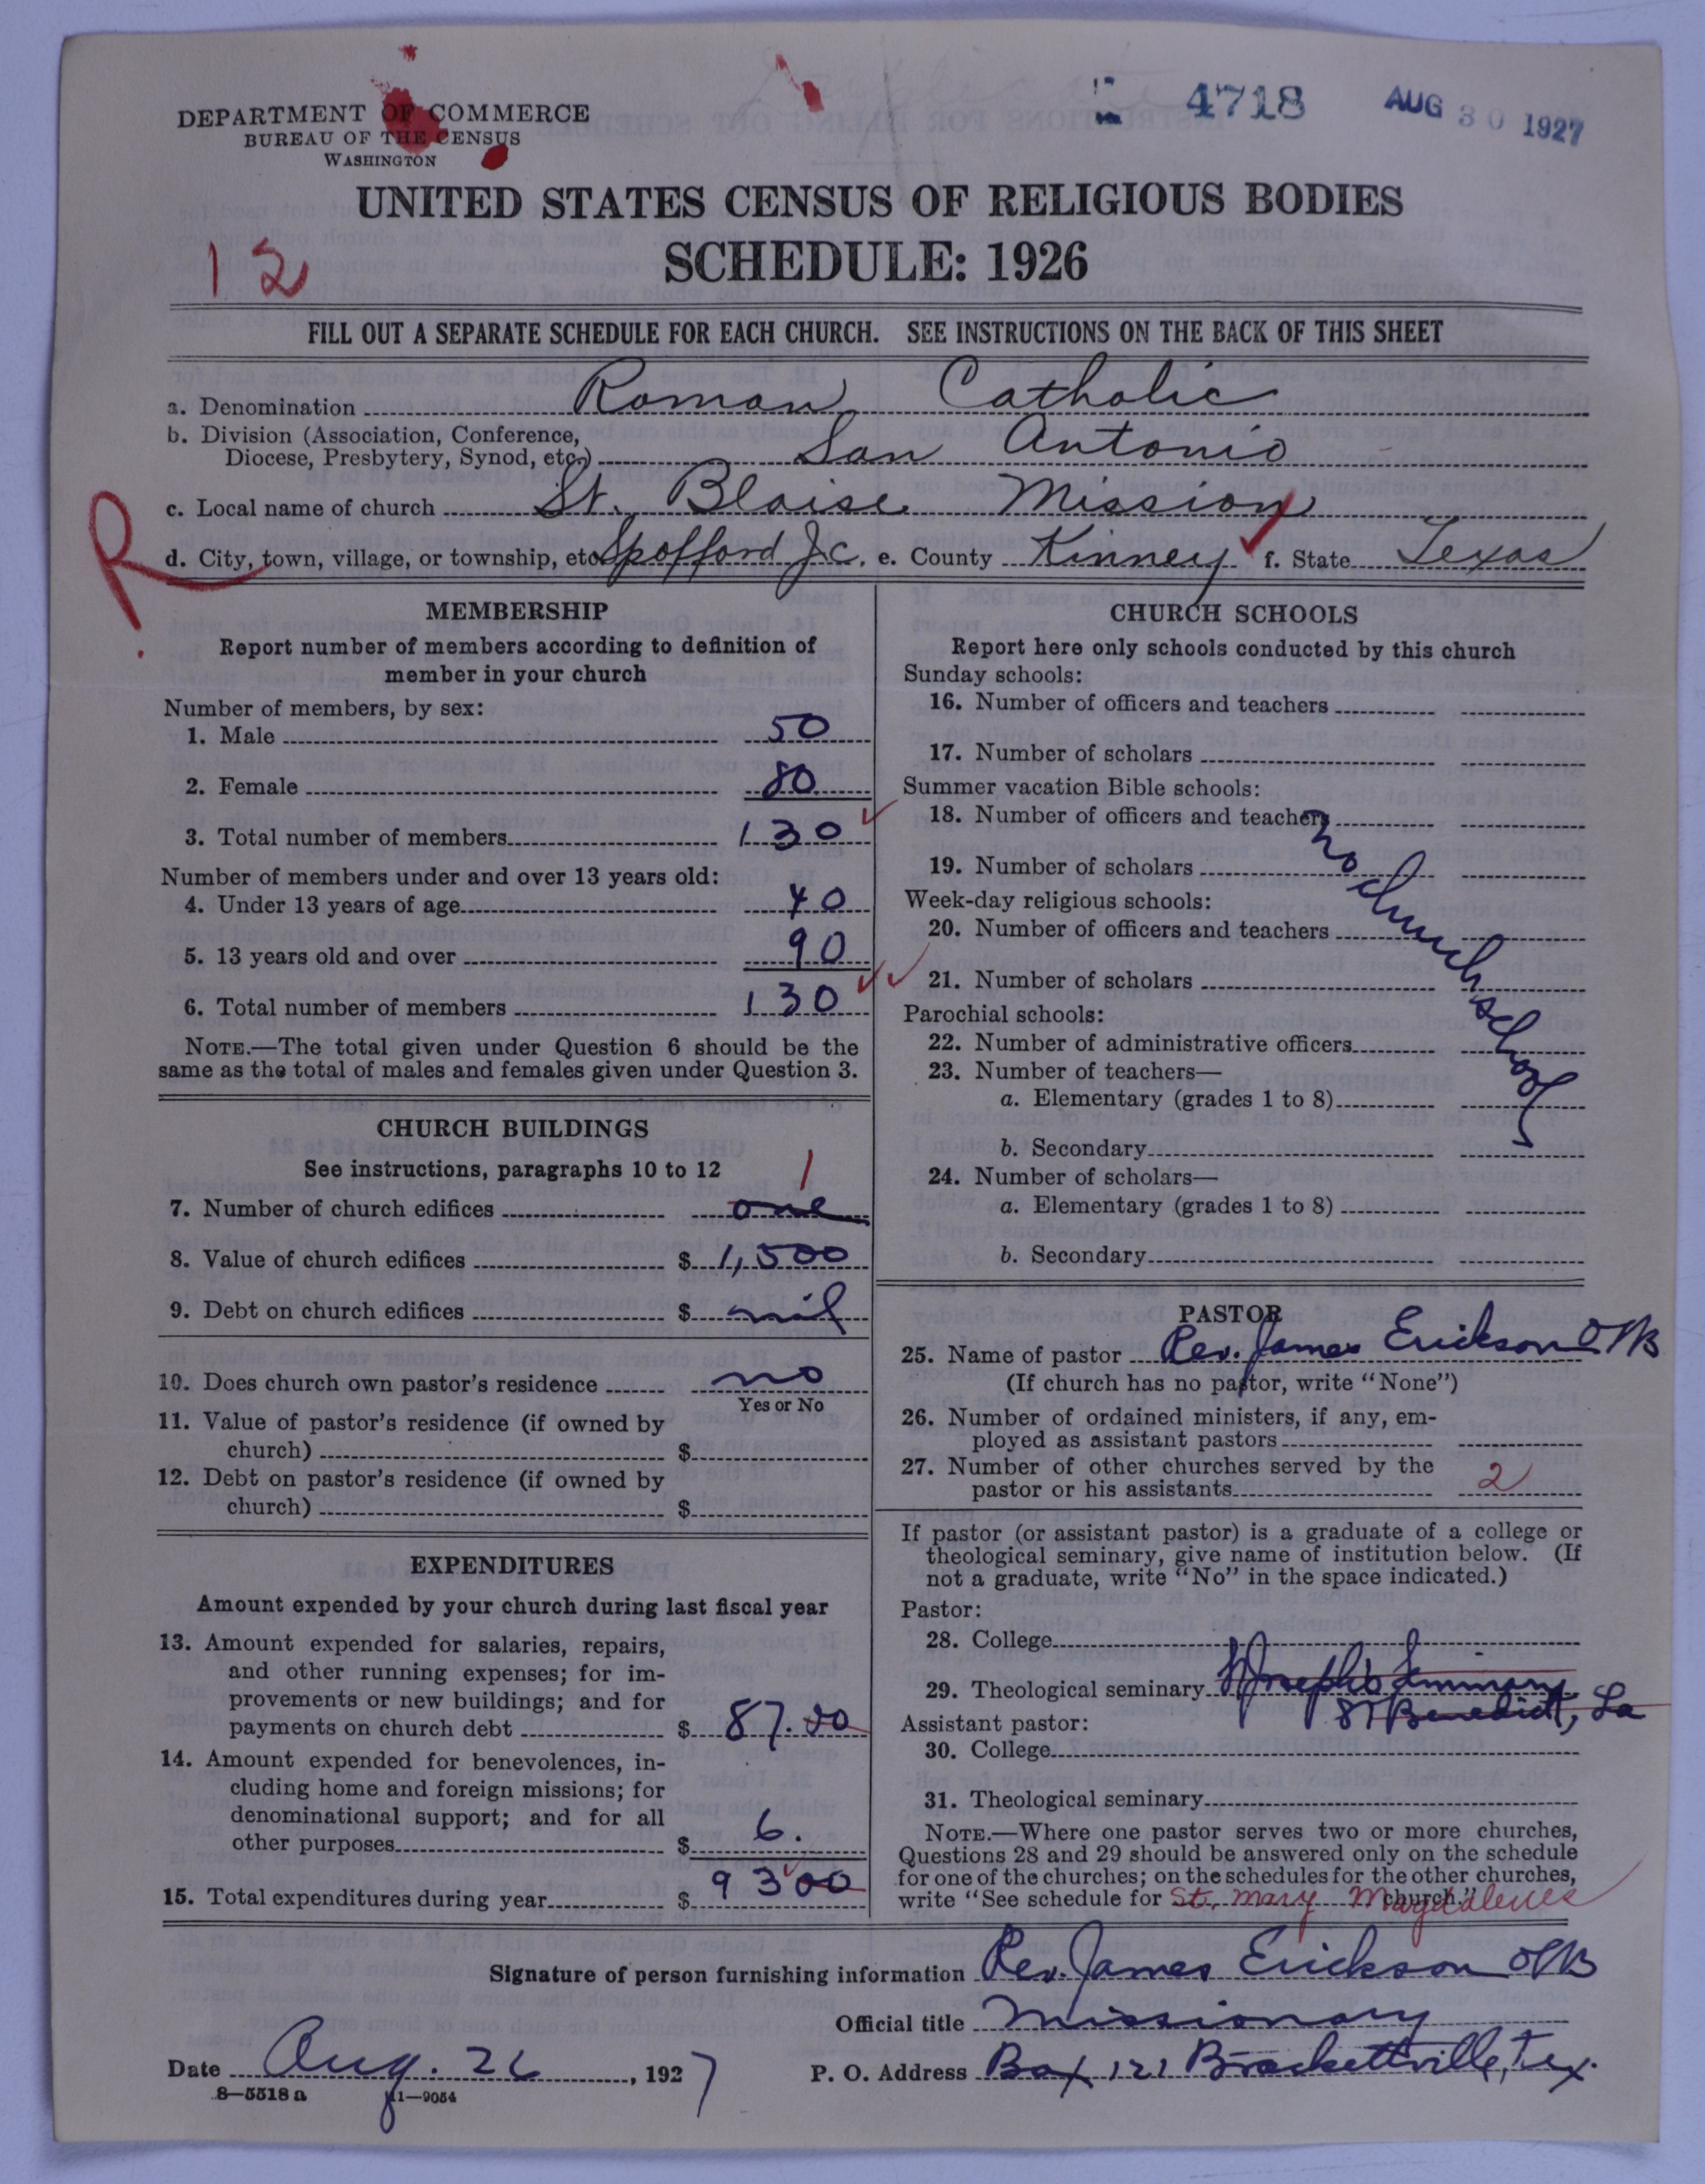 4718 AUG 30 1927
DEPARTMENT OF COMMERCE
BUREAU OF THE CENSUS
WASHINGTON
UNITED STATES CENSUS OF RELIGIOUS BODIES
SCHEDULE: 1926
12
FILL OUT A SEPARATE SCHEDULE FOR EACH CHURCH. SEE INSTRUCTIONS ON THE BACK OF THIS SHEET
a. Denomination Roman Catholic
b. Division (Association, Conference,
Diocese, Presbytery, Synod, etc.) San Antonio
c. Local name of church St. Blaise Mission
R
d. City, town, village, or township, etc. Spofford Jc. e. County Kinney f. State Texas
MEMBERSHIP
Report number of members according to definition of
member in your church
Number of members, by sex:
1. Male 50
2. Female 80
3. Total number of members 130
Number of members under and over 13 years old:
4. Under 13 years of age 40
5. 13 years old and over 90
6. Total number of members 130
NOTE.—The total given under Question 6 should be the
same as the total of males and females given under Question 3.
CHURCH BUILDINGS
See instructions, paragraphs 10 to 12
1
7. Number of church edifices one
8. Value of church edifices $ 1,500
9. Debt on church edifices $ nil
10. Does church own pastor's residence no
Yes or No
11. Value of pastor's residence (if owned by
church) $
12. Debt on pastor's residence (if owned by
church) $
EXPENDITURES
Amount expended by your church during last fiscal year
13. Amount expended for salaries, repairs,
and other running expenses; for im-
provements or new buildings; and for
payments on church debt $ 87.00
14. Amount expended for benevolences, in-
cluding home and foreign missions; for
denominational support; and for all
other purposes $ 6.
15. Total expenditures during year $ 93 00
CHURCH SCHOOLS
Report here only schools conducted by this church
Sunday schools:
16. Number of officers and teachers
17. Number of scholars
Summer vacation Bible schools:
18. Number of officers and teachers
no church school
19. Number of scholars
Week-day religious schools:
20. Number of officers and teachers
21. Number of scholars
Parochial schools:
22. Number of administrative officers
23. Number of teachers—
a. Elementary (grades 1 to 8)
b. Secondary
24. Number of scholars—
a. Elementary (grades 1 to 8)
b. Secondary
PASTOR
25. Name of pastor Rev. James Erickson
(If church has no pastor, write "None")
26. Number of ordained ministers, if any, em-
ployed as assistant pastors
27. Number of other churches served by the
pastor or his assistants 2
If pastor (or assistant pastor) is a graduate of a college or
theological seminary, give name of institution below. (If
not a graduate, write "No" in the space indicated.)
Pastor:
28. College
29. Theological seminary St Joseph's Seminary
St Benedict, La
Assistant pastor:
30. College
31. Theological seminary
NOTE.—Where one pastor serves two or more churches,
Questions 28 and 29 should be answered only on the schedule
for one of the churches; on the schedules for the other churches,
write "See schedule for St. Mary Magdalenes church."
Signature of person furnishing information Rev. James Erickson
Official title Missionary
Date Aug. 26, 1927 P. O. Address Box 121 Brackettville, Tex.
8—5518 a 11—9054